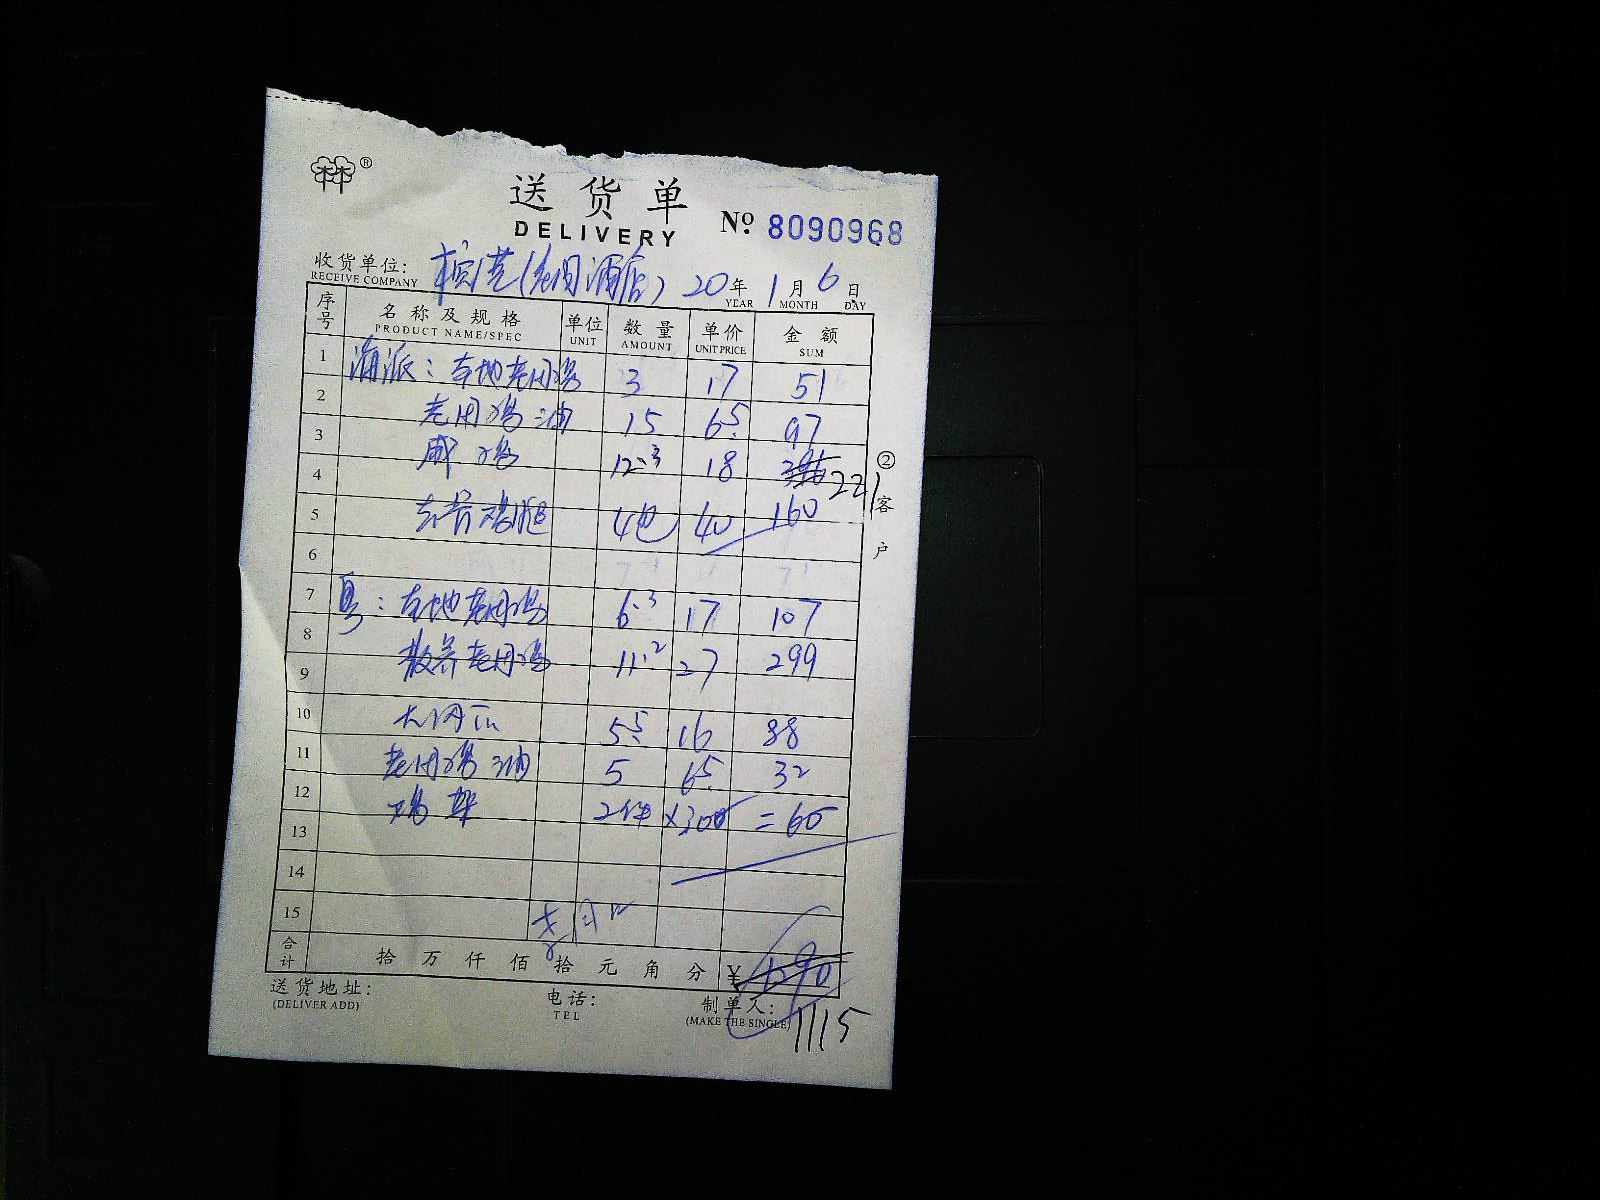 ®
送货单
DELIVERY
№ 8090968
收货单位:
RECEIVE COMPANY
20年 1月 6日
YEAR MONTH DAY
序号 名称及规格 单位 数量 单价 金额
PRODUCT NAME/SPEC UNIT AMOUNT UNIT PRICE SUM
1 海派: 本地老用鸡 3 17 51
2 老用鸡油 15 6.5 97
3 鸡 12.3 18 221
4
5 鸡腿 4包 40 160
6
7 粤: 本地老用鸡 6.3 17 107
8 散养老用鸡 11.2 27 299
9
10 5.5 16 88
11 老用鸡油 5 6.5 32
12 鸡架 2件 ×30 = 60
13
14
15
合计 拾万仟佰拾元角分 ¥
1115
送货地址:
(DELIVER ADD)
电话:
TEL
制单人:
(MAKE THE SINGLE)
②客户